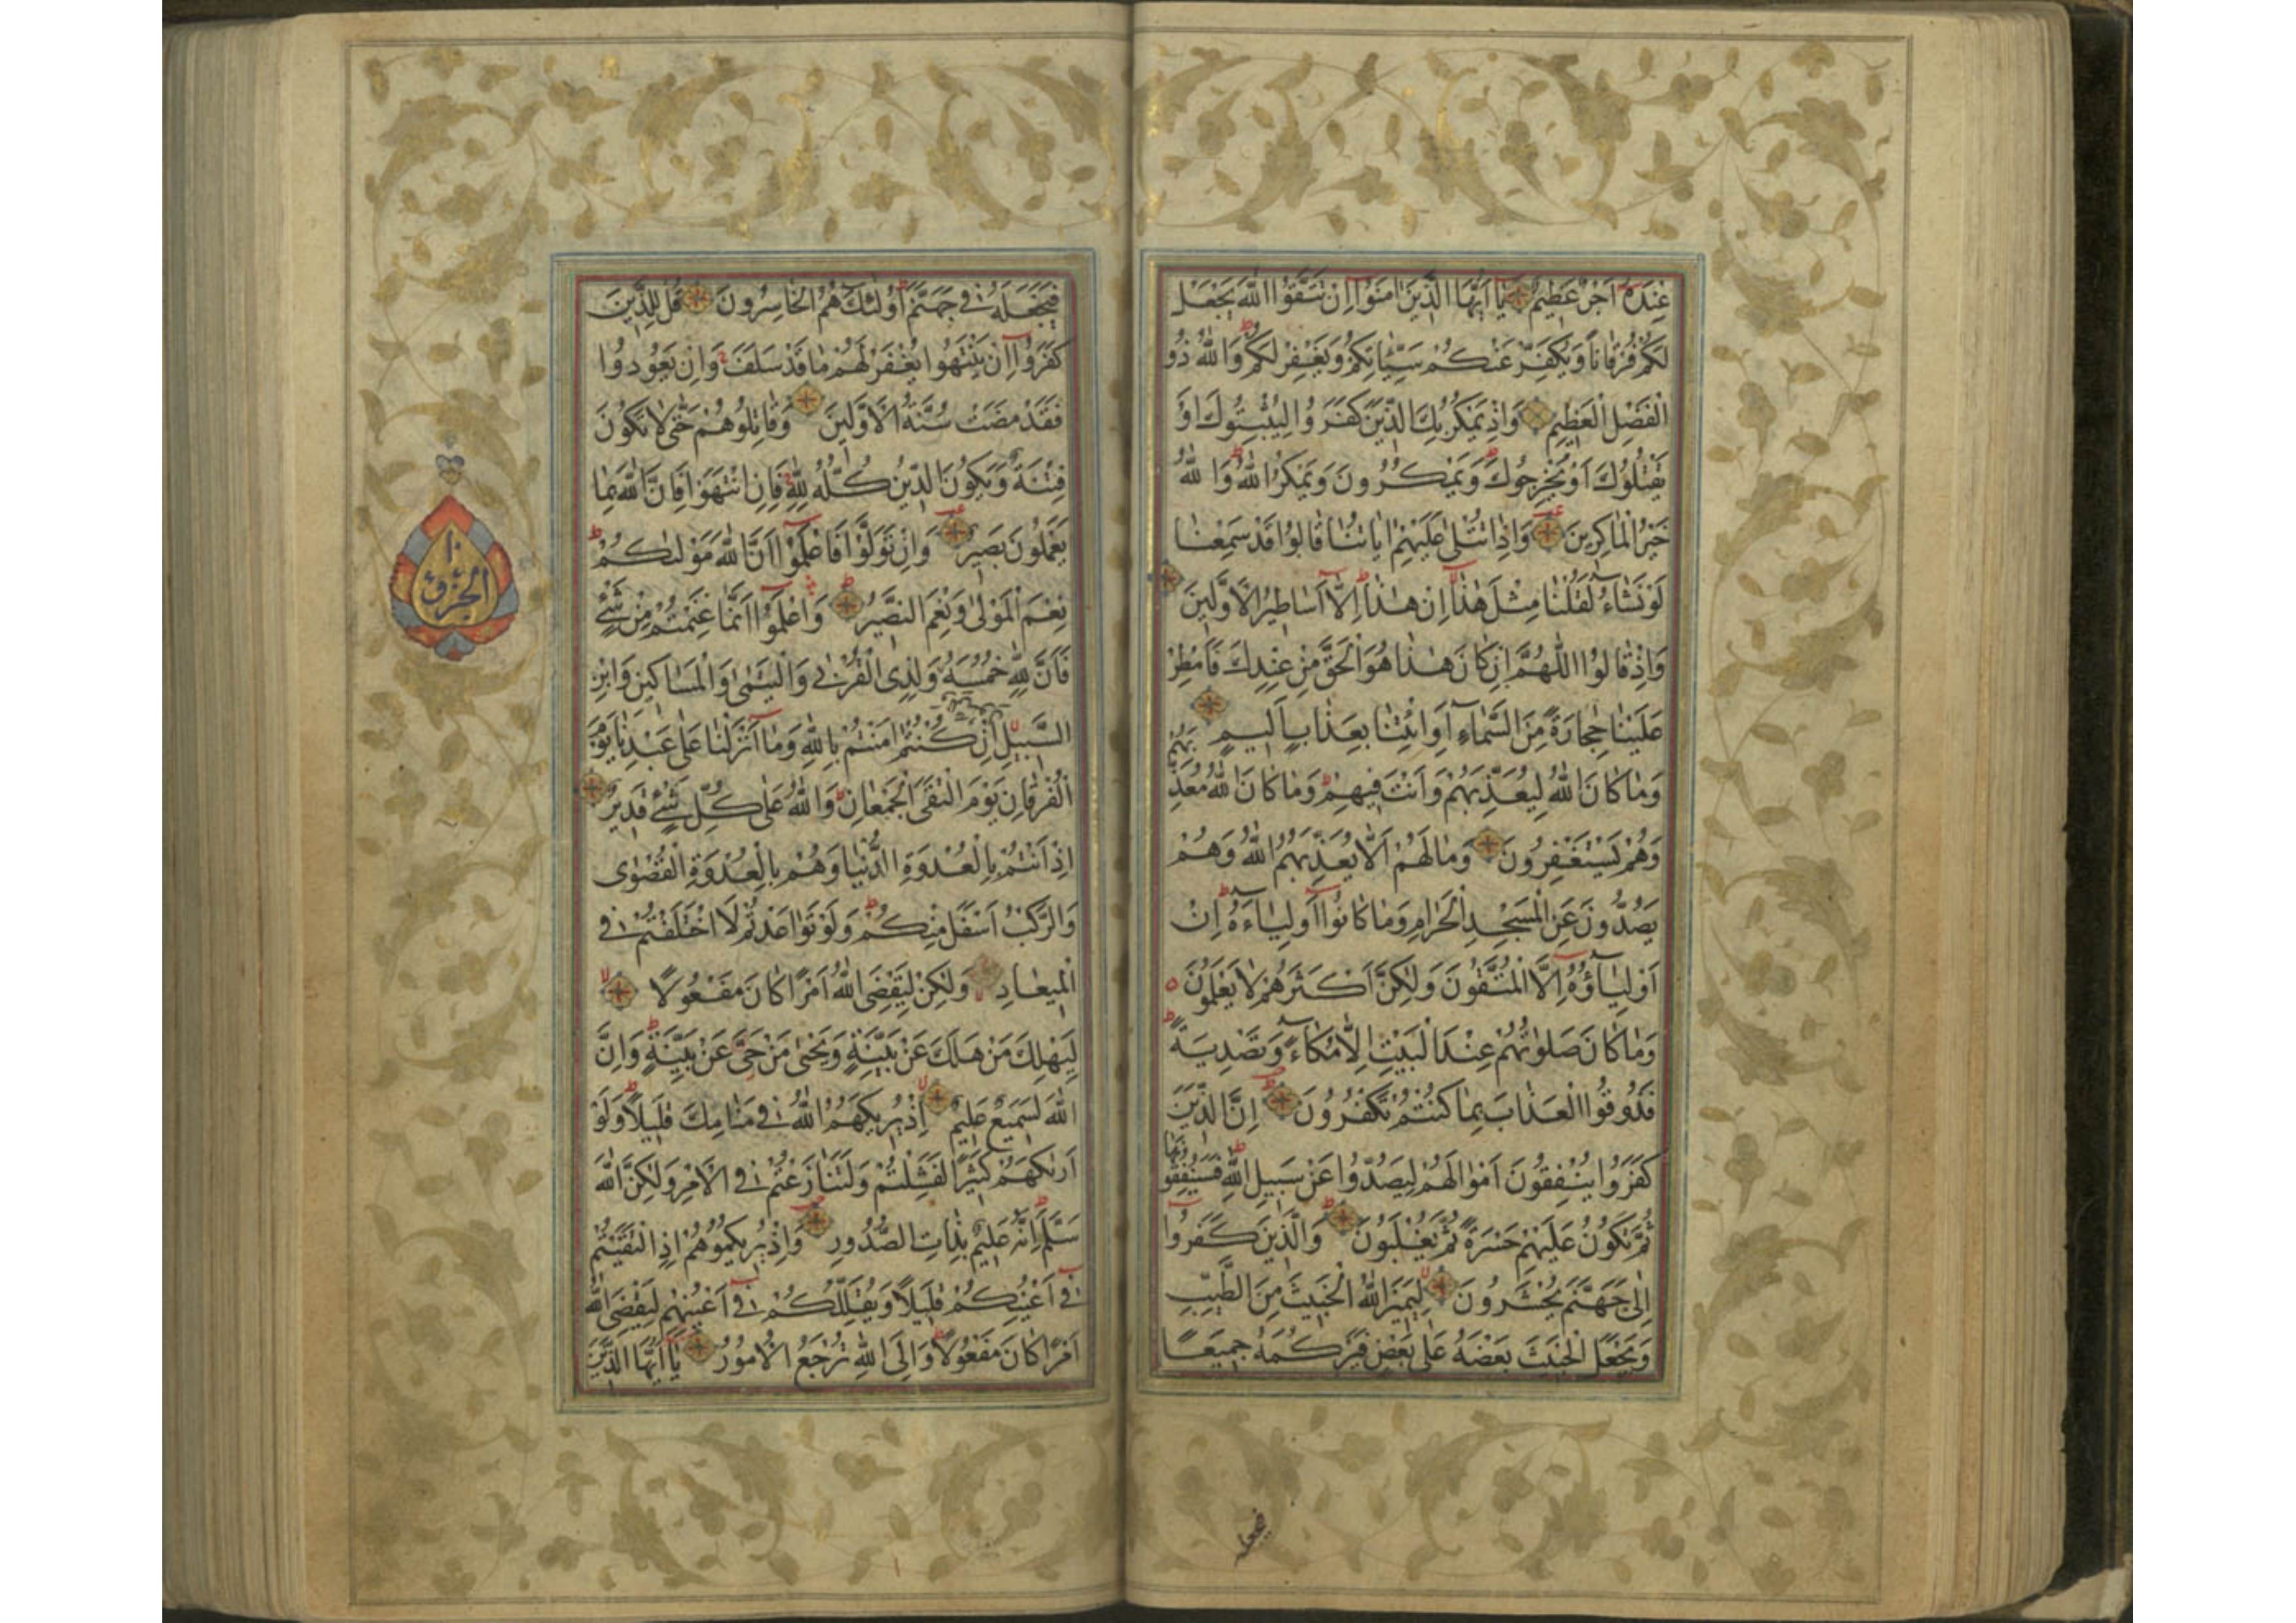 عِنْدَهُ اَجْرٌ عَظِيمٌ يَا اَيُّهَا الَّذِينَ اٰمَنُوا اِنْ تَتَّقُوا اللّٰهَ يَجْعَلْ
لَكُمْ فُرْقَانًا وَيُكَفِّرْ عَنْكُمْ سَيِّئَاتِكُمْ وَيَغْفِرْ لَكُمْ وَاللّٰهُ ذُو
الْفَضْلِ الْعَظِيمِ وَاِذْ يَمْكُرُ بِكَ الَّذِينَ كَفَرُوا لِيُثْبِتُوكَ اَوْ
يَقْتُلُوكَ اَوْ يُخْرِجُوكَ وَيَمْكُرُونَ وَيَمْكُرُ اللّٰهُ وَاللّٰهُ
خَيْرُ الْمَاكِرِينَ وَاِذَا تُتْلٰى عَلَيْهِمْ اٰيَاتُنَا قَالُوا قَدْ سَمِعْنَا
لَوْ نَشَاءُ لَقُلْنَا مِثْلَ هٰذَا اِنْ هٰذَا اِلَّا اَسَاطِيرُ الْاَوَّلِينَ
وَاِذْ قَالُوا اللّٰهُمَّ اِنْ كَانَ هٰذَا هُوَ الْحَقَّ مِنْ عِنْدِكَ فَاَمْطِرْ
عَلَيْنَا حِجَارَةً مِنَ السَّمَاءِ اَوِ ائْتِنَا بِعَذَابٍ اَلِيمٍ
وَمَا كَانَ اللّٰهُ لِيُعَذِّبَهُمْ وَاَنْتَ فِيهِمْ وَمَا كَانَ اللّٰهُ مُعَذِّبَهُمْ
وَهُمْ يَسْتَغْفِرُونَ وَمَا لَهُمْ اَلَّا يُعَذِّبَهُمُ اللّٰهُ وَهُمْ
يَصُدُّونَ عَنِ الْمَسْجِدِ الْحَرَامِ وَمَا كَانُوا اَوْلِيَاءَهُ اِنْ
اَوْلِيَاؤُهُ اِلَّا الْمُتَّقُونَ وَلٰكِنَّ اَكْثَرَهُمْ لَا يَعْلَمُونَ
وَمَا كَانَ صَلَوتُهُمْ عِنْدَ الْبَيْتِ اِلَّا مُكَاءً وَتَصْدِيَةً
فَذُوقُوا الْعَذَابَ بِمَا كُنْتُمْ تَكْفُرُونَ اِنَّ الَّذِينَ
كَفَرُوا يُنْفِقُونَ اَمْوَالَهُمْ لِيَصُدُّوا عَنْ سَبِيلِ اللّٰهِ فَسَيُنْفِقُونَهَا
ثُمَّ تَكُونُ عَلَيْهِمْ حَسْرَةً ثُمَّ يُغْلَبُونَ وَالَّذِينَ كَفَرُوا
اِلٰى جَهَنَّمَ يُحْشَرُونَ لِيَمِيزَ اللّٰهُ الْخَبِيثَ مِنَ الطَّيِّبِ
وَيَجْعَلَ الْخَبِيثَ بَعْضَهُ عَلٰى بَعْضٍ فَيَرْكُمَهُ جَمِيعًا
فَيَجْعَلَهُ فِي جَهَنَّمَ اُولٰئِكَ هُمُ الْخَاسِرُونَ قُلْ لِلَّذِينَ
كَفَرُوا اِنْ يَنْتَهُوا يُغْفَرْ لَهُمْ مَا قَدْ سَلَفَ وَاِنْ يَعُودُوا
فَقَدْ مَضَتْ سُنَّةُ الْاَوَّلِينَ وَقَاتِلُوهُمْ حَتّٰى لَا تَكُونَ
فِتْنَةٌ وَيَكُونَ الدِّينُ كُلُّهُ لِلّٰهِ فَاِنِ انْتَهَوْا فَاِنَّ اللّٰهَ بِمَا
يَعْمَلُونَ بَصِيرٌ وَاِنْ تَوَلَّوْا فَاعْلَمُوا اَنَّ اللّٰهَ مَوْلٰىكُمْ
نِعْمَ الْمَوْلٰى وَنِعْمَ النَّصِيرُ وَاعْلَمُوا اَنَّمَا غَنِمْتُمْ مِنْ شَيْءٍ
فَاَنَّ لِلّٰهِ خُمُسَهُ وَلِلرَّسُولِ وَلِذِى الْقُرْبٰى وَالْيَتٰمٰى وَالْمَسَاكِينِ وَابْنِ
السَّبِيلِ اِنْ كُنْتُمْ اٰمَنْتُمْ بِاللّٰهِ وَمَا اَنْزَلْنَا عَلٰى عَبْدِنَا يَوْمَ
الْفُرْقَانِ يَوْمَ الْتَقَى الْجَمْعَانِ وَاللّٰهُ عَلٰى كُلِّ شَيْءٍ قَدِيرٌ
اِذْ اَنْتُمْ بِالْعُدْوَةِ الدُّنْيَا وَهُمْ بِالْعُدْوَةِ الْقُصْوٰى
وَالرَّكْبُ اَسْفَلَ مِنْكُمْ وَلَوْ تَوَاعَدْتُمْ لَاخْتَلَفْتُمْ فِي
الْمِيعَادِ وَلٰكِنْ لِيَقْضِيَ اللّٰهُ اَمْرًا كَانَ مَفْعُولًا
لِيَهْلِكَ مَنْ هَلَكَ عَنْ بَيِّنَةٍ وَيَحْيٰى مَنْ حَيَّ عَنْ بَيِّنَةٍ وَاِنَّ
اللّٰهَ لَسَمِيعٌ عَلِيمٌ اِذْ يُرِيكَهُمُ اللّٰهُ فِي مَنَامِكَ قَلِيلًا وَلَوْ
اَرٰيكَهُمْ كَثِيرًا لَفَشِلْتُمْ وَلَتَنَازَعْتُمْ فِي الْاَمْرِ وَلٰكِنَّ اللّٰهَ
سَلَّمَ اِنَّهُ عَلِيمٌ بِذَاتِ الصُّدُورِ وَاِذْ يُرِيكُمُوهُمْ اِذِ الْتَقَيْتُمْ
فِي اَعْيُنِكُمْ قَلِيلًا وَيُقَلِّلُكُمْ فِي اَعْيُنِهِمْ لِيَقْضِيَ اللّٰهُ
اَمْرًا كَانَ مَفْعُولًا وَاِلَى اللّٰهِ تُرْجَعُ الْاُمُورُ يَا اَيُّهَا الَّذِينَ
الجزؤ ١٠
فيجعله